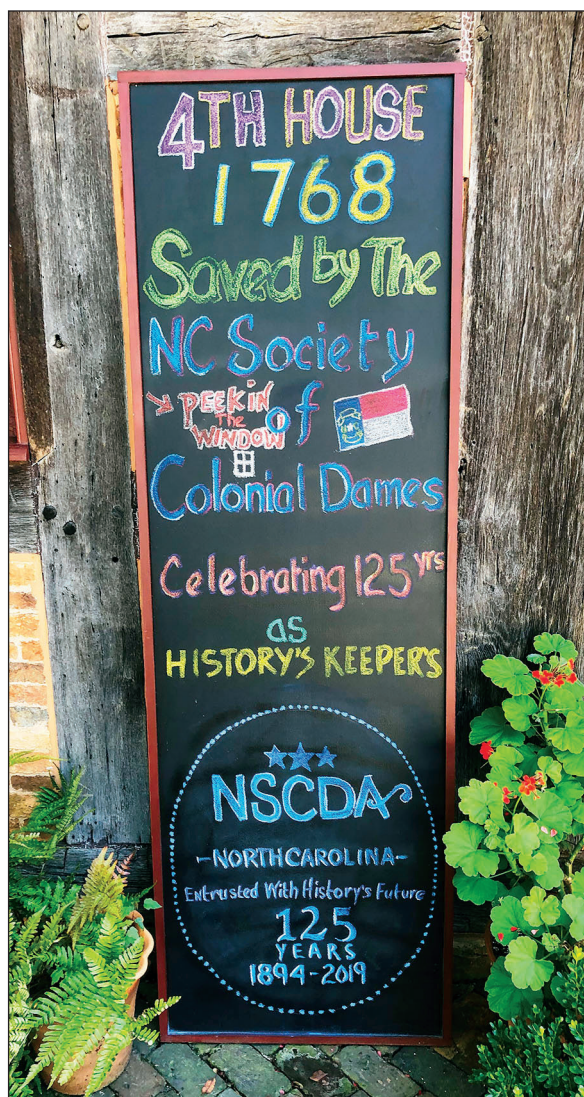 4TH HOUSE
1768
Saved by The
NC Society
PEEK IN
The
WINDOW
of
Colonial Dames
Celebrating 125 yrs
as
HISTORY'S KEEPER'S
NSCDA
-NORTH CAROLINA-
Entrusted With History's Future
125
YEARS
1894-2019